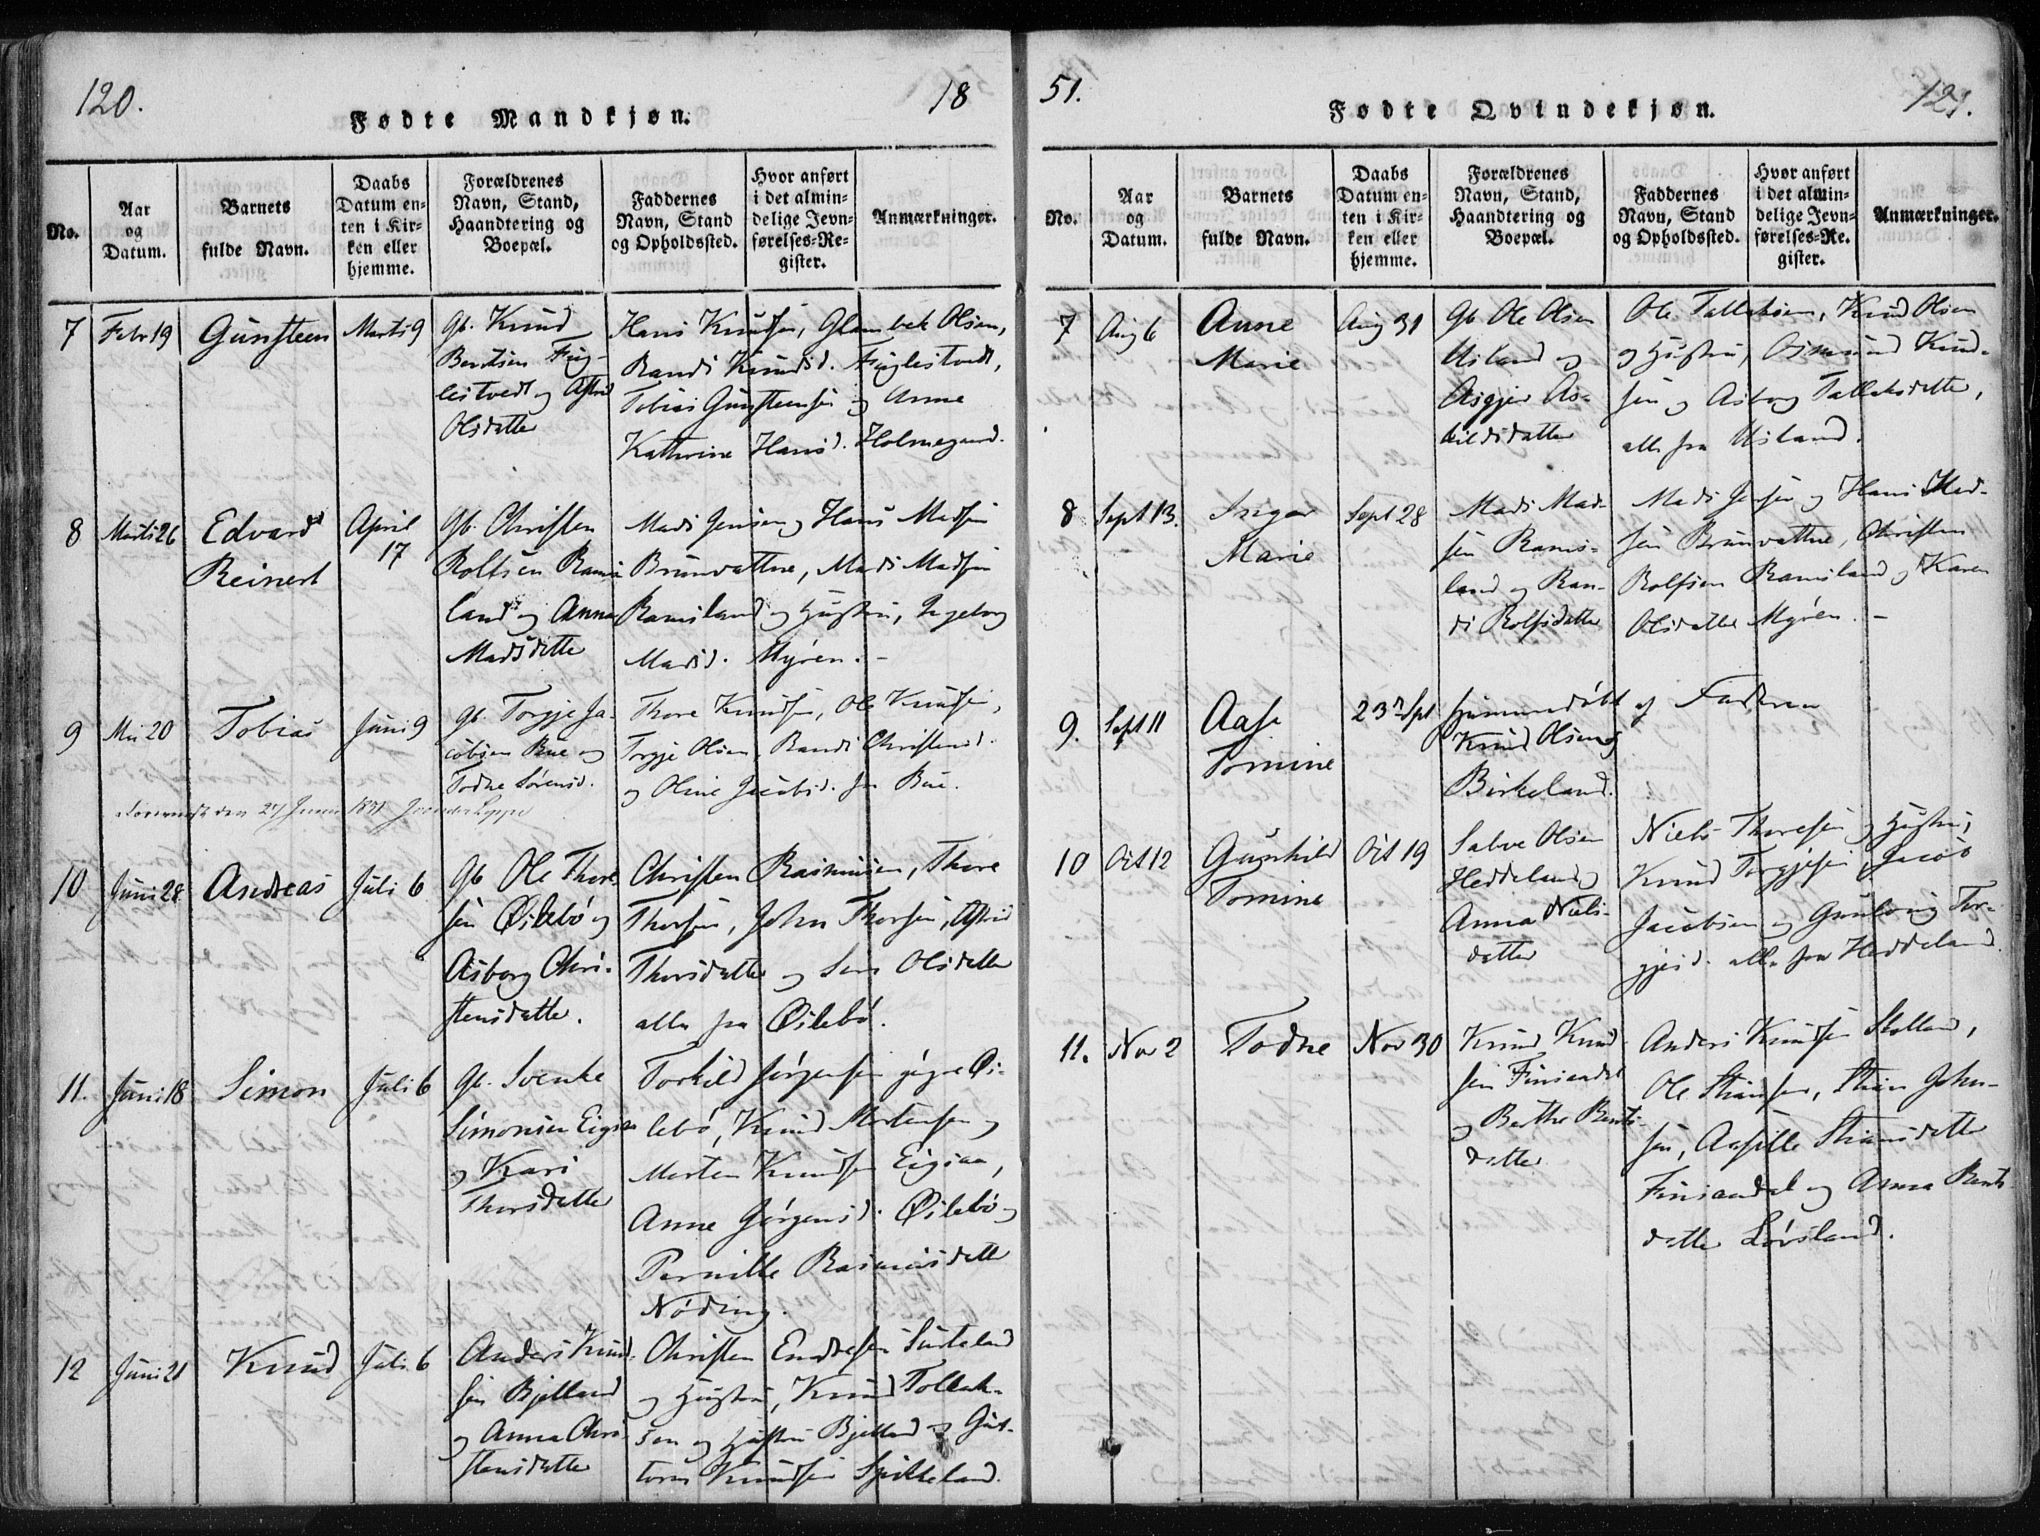 120.
18
Fødte Mandkjøn.
No.
Aar
og
Datum.
Barnets
fulde Navn.
Daabs
Datum en-
ten i Kir-
ken eller
hjemme.
Forældrenes
Navn, Stand,
Haandtering og
Boepæl.
Faddernes
Navn, Stand
og Opholdssted.
Hvor anført
i det almin-
delige Jevn-
førelses-Re-
gister.
Anmærkninger.
7
Febr 19
Gunsteen
Marts 9
Gb. Knud
Berntsen Fug-
lestvedt og Astrid
Olsdatter
Hans Knudsen, Olsen,
Randi Knudsd. Fuglestvedt,
Tobias Gunsteensen og Anne
Kathrine Hansd. Holmegaard.
8
Marts 26
Edvard
Reinert
April
17
Gb. Christen
Rolfsen Rams-
land og Anna
Madsdatter
Mads Jensen og Hans Madsen
Brunvattne, Mads Madsen
Ramsland og Hustru, Ingeborg
Madsd. Myren. -
9
Mai 20
Tobias
Juni 9
Gb. Torgje Ja-
cobsen Bue og
Todne Sørensd.
Thore Knudsen, Ole Knudsen,
Torgje Olsen, Randi Christensd.
og Oline Jacobsd. fra Bue.
den 27 Juni 18
10
Juni 28
Andreas
Juli 6
Gb Ole Thor-
sen Øilebø og
Asborg Chri-
stensdatter.
Christen Rasmusen, Thore
Thorsen, John Thorsen, Astrid
Thorsdatter og Olsdatter
alle fra Øilebø.
11.
Juni 18
Simon
Juli 6
Gb. Svenke
Simonsen Eigaa
og Kari
Thorsdatter
Torkild Jørgensen Øi-
lebø, Knud Mortensen og
Morten Knudsen Eigaa,
Anne Jørgensd. Øilebø og
Pernille Rasmusdatter
Nøding.
12
Juni 21
Knud
Juli 6
Anders Knud-
sen Bjelland
og Anna Chri-
stensdatter
Christen Endresen
og Hustru, Knud Tollak-
sen og Hustru Bjelland og Gut-
torm Knudsen Spikkeland.
51.
121.
Fødte Qvindekjøn.
No.
Aar
og
Datum.
Barnets
fulde Navn.
Daabs
Datum en-
ten i Kir-
ken eller
hjemme.
Forældrenes
Navn, Stand,
Haandtering og
Boepæl.
Faddernes
Navn, Stand
og Opholdssted.
Hvor anført
i det almin-
delige Jevn-
førelses-Re.
gister.
Anmærkninger.
7
Aug 6
Anne
Marie
Aug 31
Gb. Ole Olsen
Usland og
Asgjer As-
kildsdatter
Ole Tallaksen, Knud Olsen
og Hustru, Osmund Knud-
sen og Asborg Tallaksdatter,
alle fra Usland.
8
Sept 13.
Inger
Marie
Sept 28
Mads Mad-
sen Rams-
land og Ran-
di Rolfsdatter
Mads Jensen og Hans Mad-
sen Brunvattne, Christen
Rolfsen Ramsland og Karen
Olsdatter Myren. -
9.
Sept 11
Aase
Tomine
23 Sept
hjemmedøbt af Faderen
Knud Olsen
Birkeland.
10
Oct 12
Gunhild
Tomine
Oct 19
Salve Olsen
Heddeland og
Anna Niels-
datter
Niels Thoresen og Hustru,
Knud Torgjesen, Jacob
Jacobsen og Gunlaug Tor-
gjesd. alle fra Heddeland.
11.
Nov 2
Todne
Nov 30
Knud Knud-
sen Finsaadal
og Berthe Bents-
datter
Anders Knudsen
Ole Stiansen, Stian John-
sen, Stiansdatter
Finsaadal og Anna Bents-
datter Løvsland.